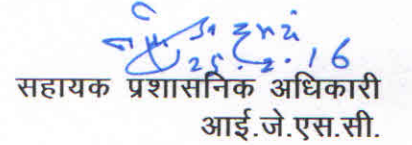 25.2.16
सहायक प्रशासनिक अधिकारी
आई.जे.एस.सी.